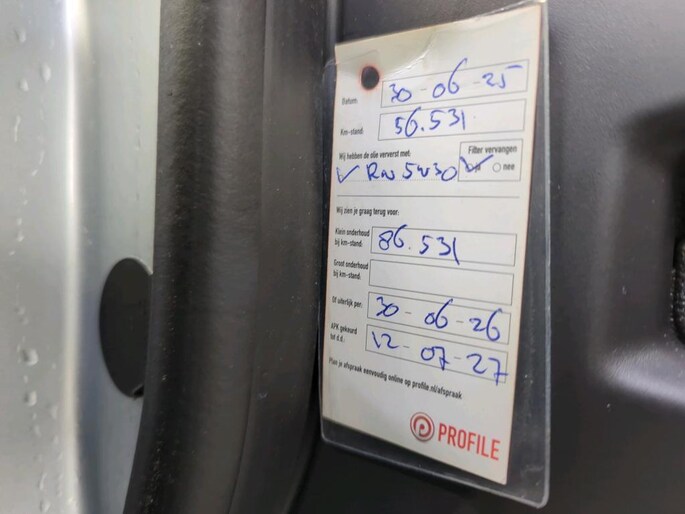 Datum: 30-06-25
Km-stand: 56.531
Wij hebben de olie ververst met: Filter vervangen
✓ RN 5W30 ja nee
Wij zien je graag terug voor:
Klein onderhoud bij km-stand: 86.531
Groot onderhoud bij km-stand:
Of uiterlijk per: 30-06-26
APK gekeurd tot d.d.: 12-07-27
Plan je afspraak eenvoudig online op profile.nl/afspraak
PROFILE